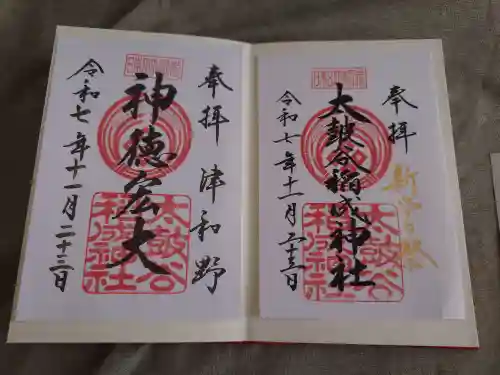 奉拝
新嘗祭
太皷谷稲成神社
令和七年十一月二十三日
太皷谷
稲成神社
奉拝 津和野
神徳宏大
令和七年十一月二十三日
太皷谷
稲成神社